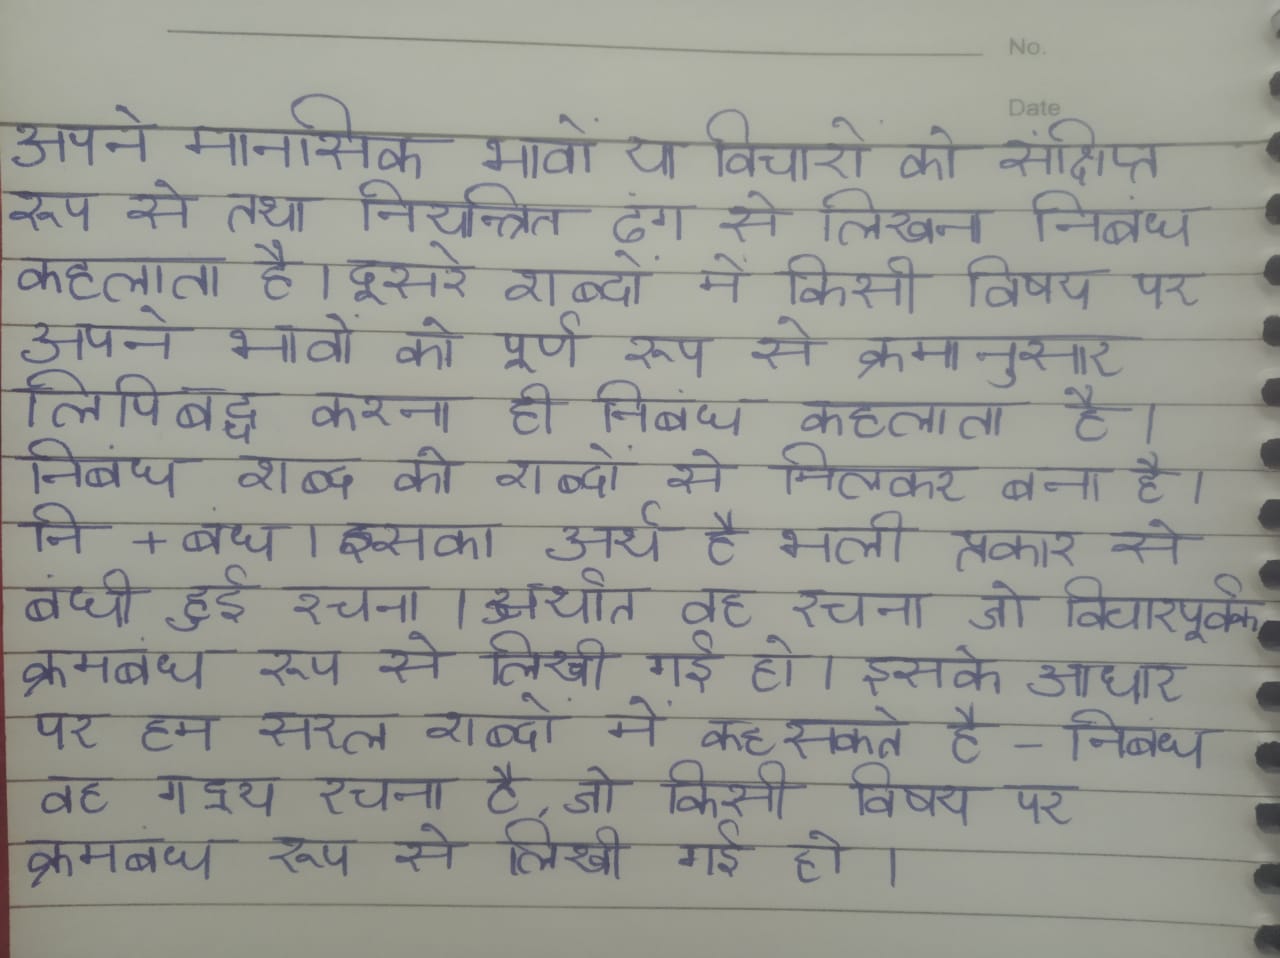 No.
Date
अपने मानसिक भावों या विचारों को संक्षिप्त
रूप से तथा नियन्त्रित ढंग से लिखना निबंध
कहलाता है। दूसरे शब्दों में किसी विषय पर
अपने भावों को पूर्ण रूप से क्रमानुसार
लिपिबद्ध करना ही निबंध कहलाता है।
निबंध शब्द को शब्दों से मिलकर बना है।
नि + बंध। इसका अर्थ है भली प्रकार से
बंधी हुई रचना। अर्थात वह रचना जो विचारपूर्वक
क्रमबंध रूप से लिखी गई हो। इसके आधार
पर हम सरल शब्दों में कह सकते है - निबंध
वह गद्य रचना है, जो किसी विषय पर
क्रमबंध रूप से लिखी गई हो।